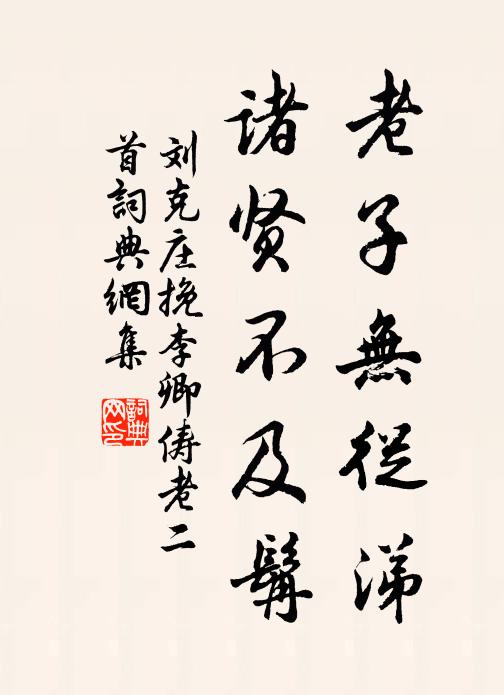 老子無從涕
诸贤不及髯
刘克庄挽李卿俦老二
首詞典網集
詞典
网印